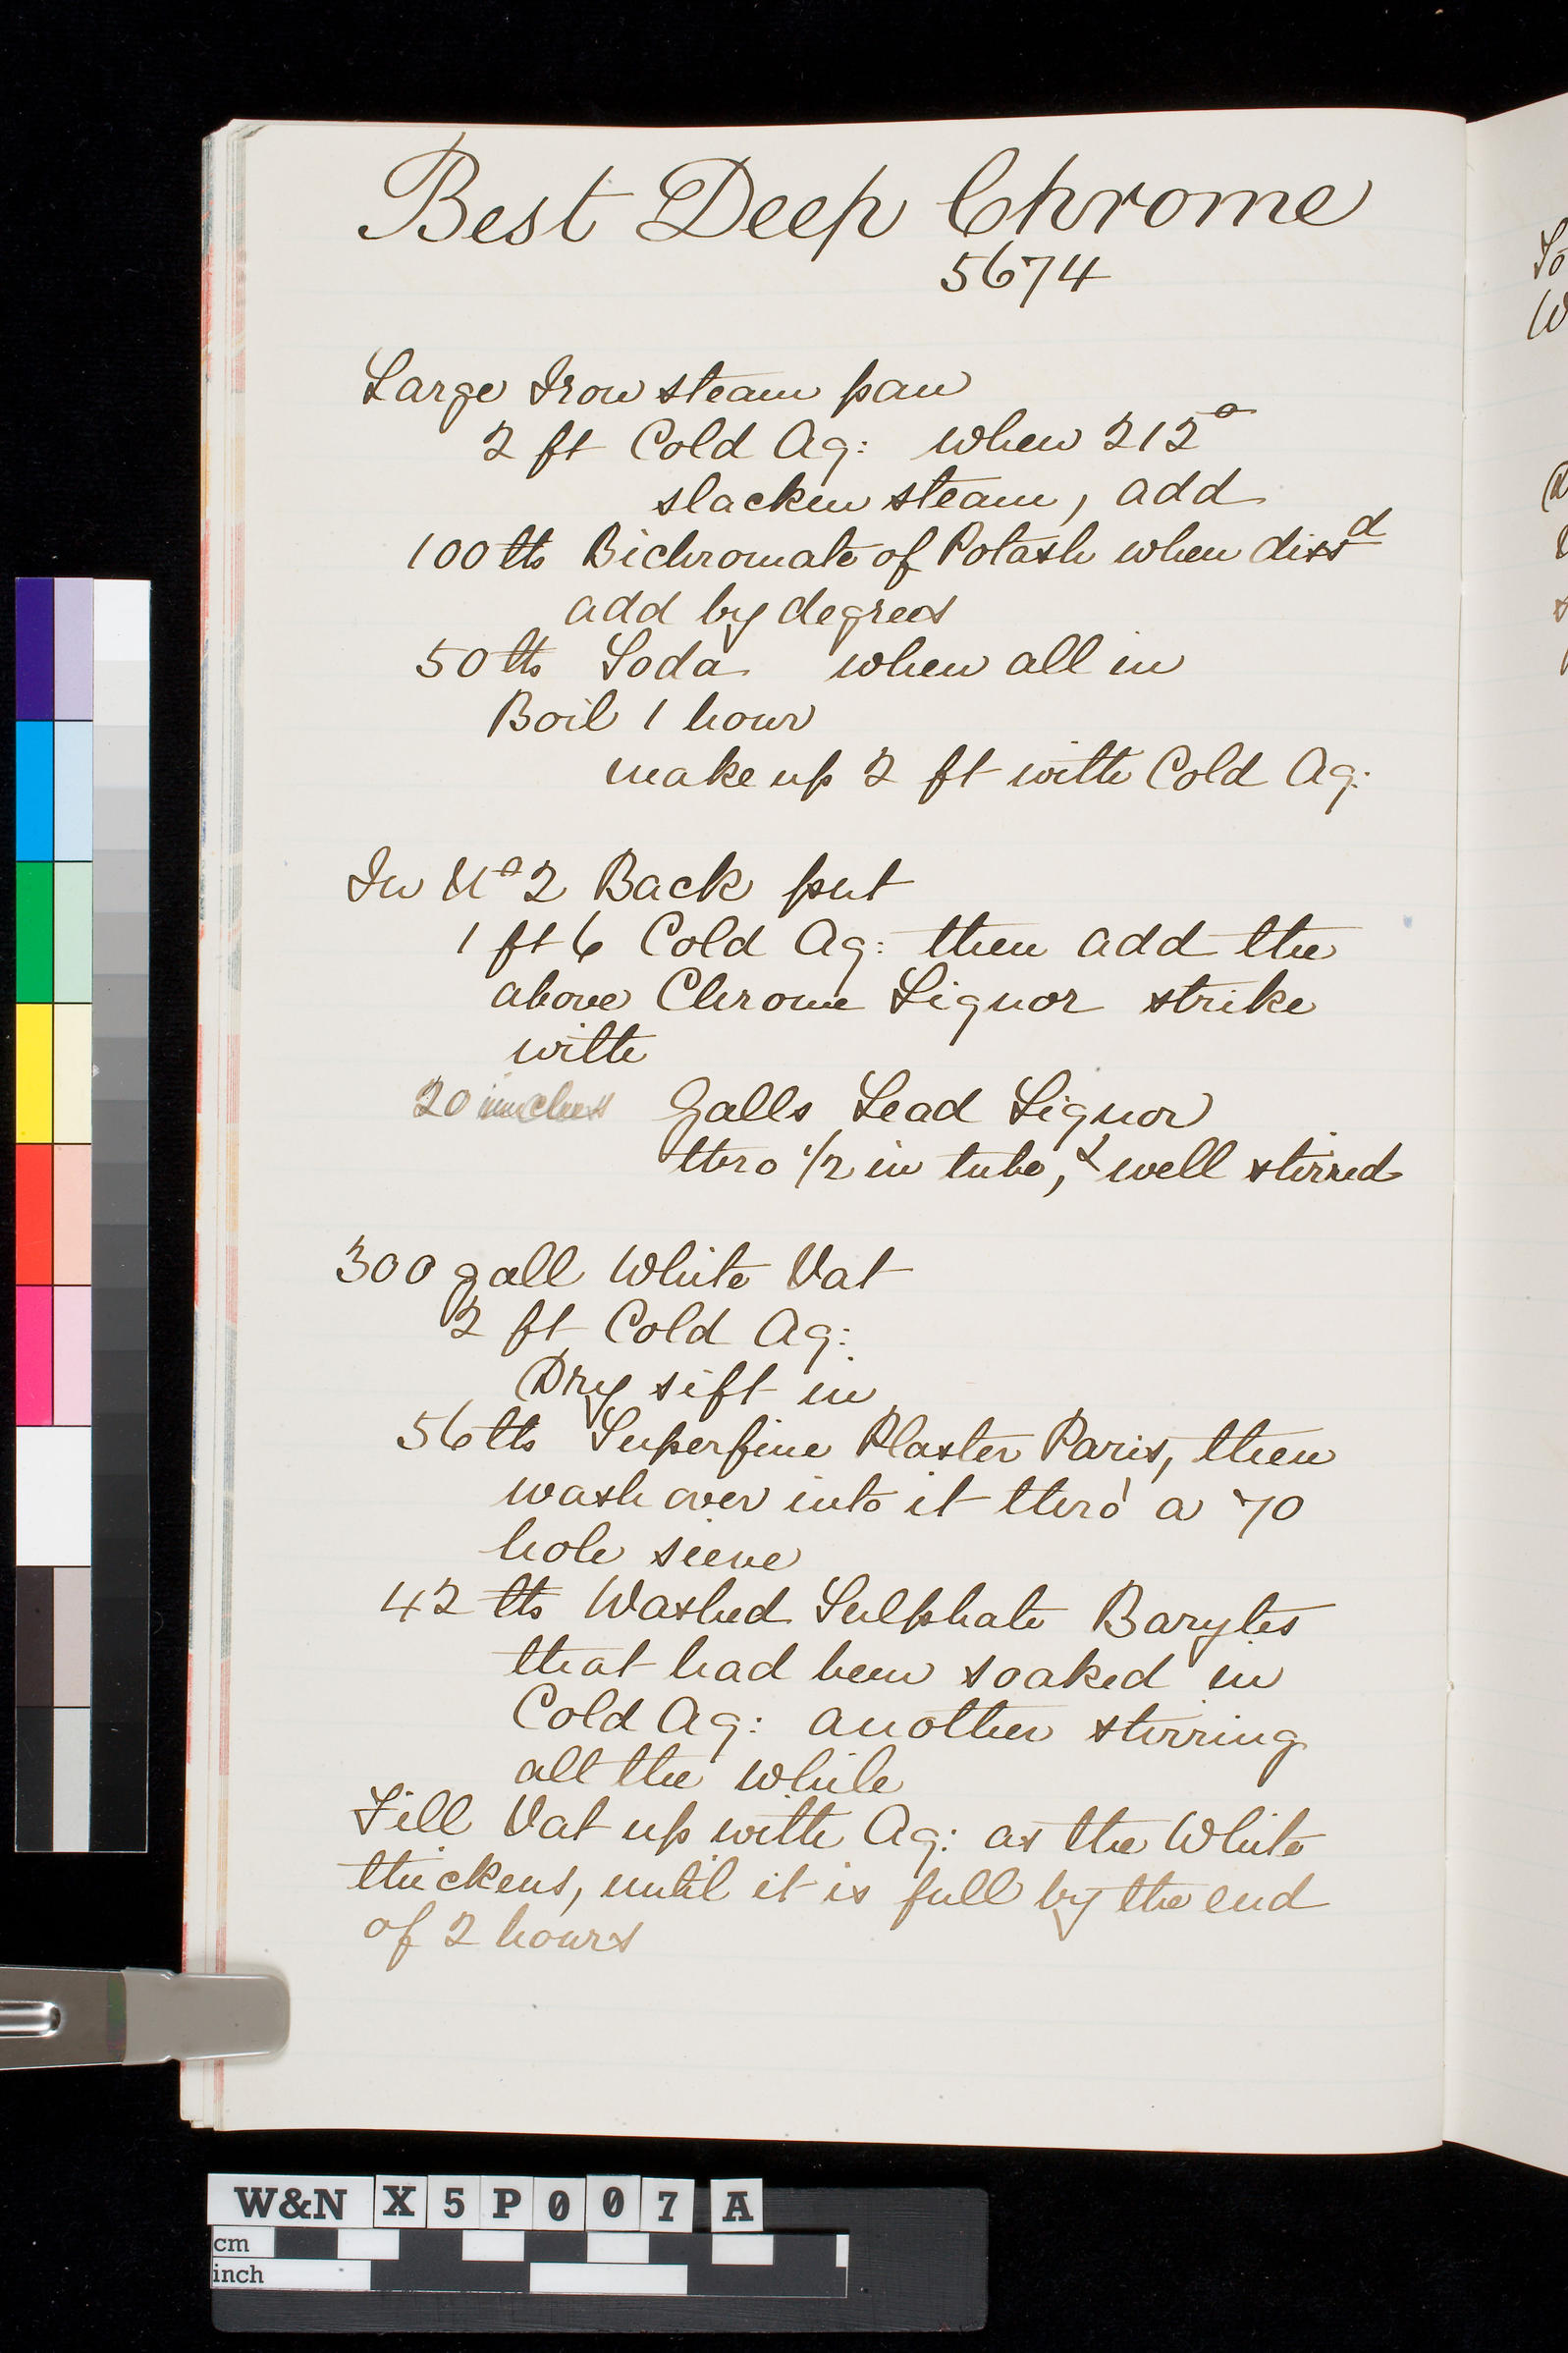 Best Deep Chrome
5674
Large Iron steam pan
2 ft Cold Aq: when 212°
slacken steam, add
100 lbs Bichromate of Potash when dissd
add by degrees
50 lbs Soda when all in
Boil 1 hour
make up 2 ft with Cold Aq:
In No 2 Back put
1 ft 6 Cold Aq: then add the
above Chrome Liquor strike
with
20 inches Galls Lead Liquor
thro 1/2 in tube, & well stirred
300 gall White Vat
2 ft Cold Aq:
Dry sift in
56 lbs Superfine Plaster Paris, then
wash over into it thro' a 70
hole sieve
42 lbs Washed Sulphate Barytes
that had been soaked in
Cold Aq: another stirring
all the while
Fill Vat up with Aq: as the White
thickens, until it is full by the end
of 2 hours
W&N X5P007 A
cm
inch